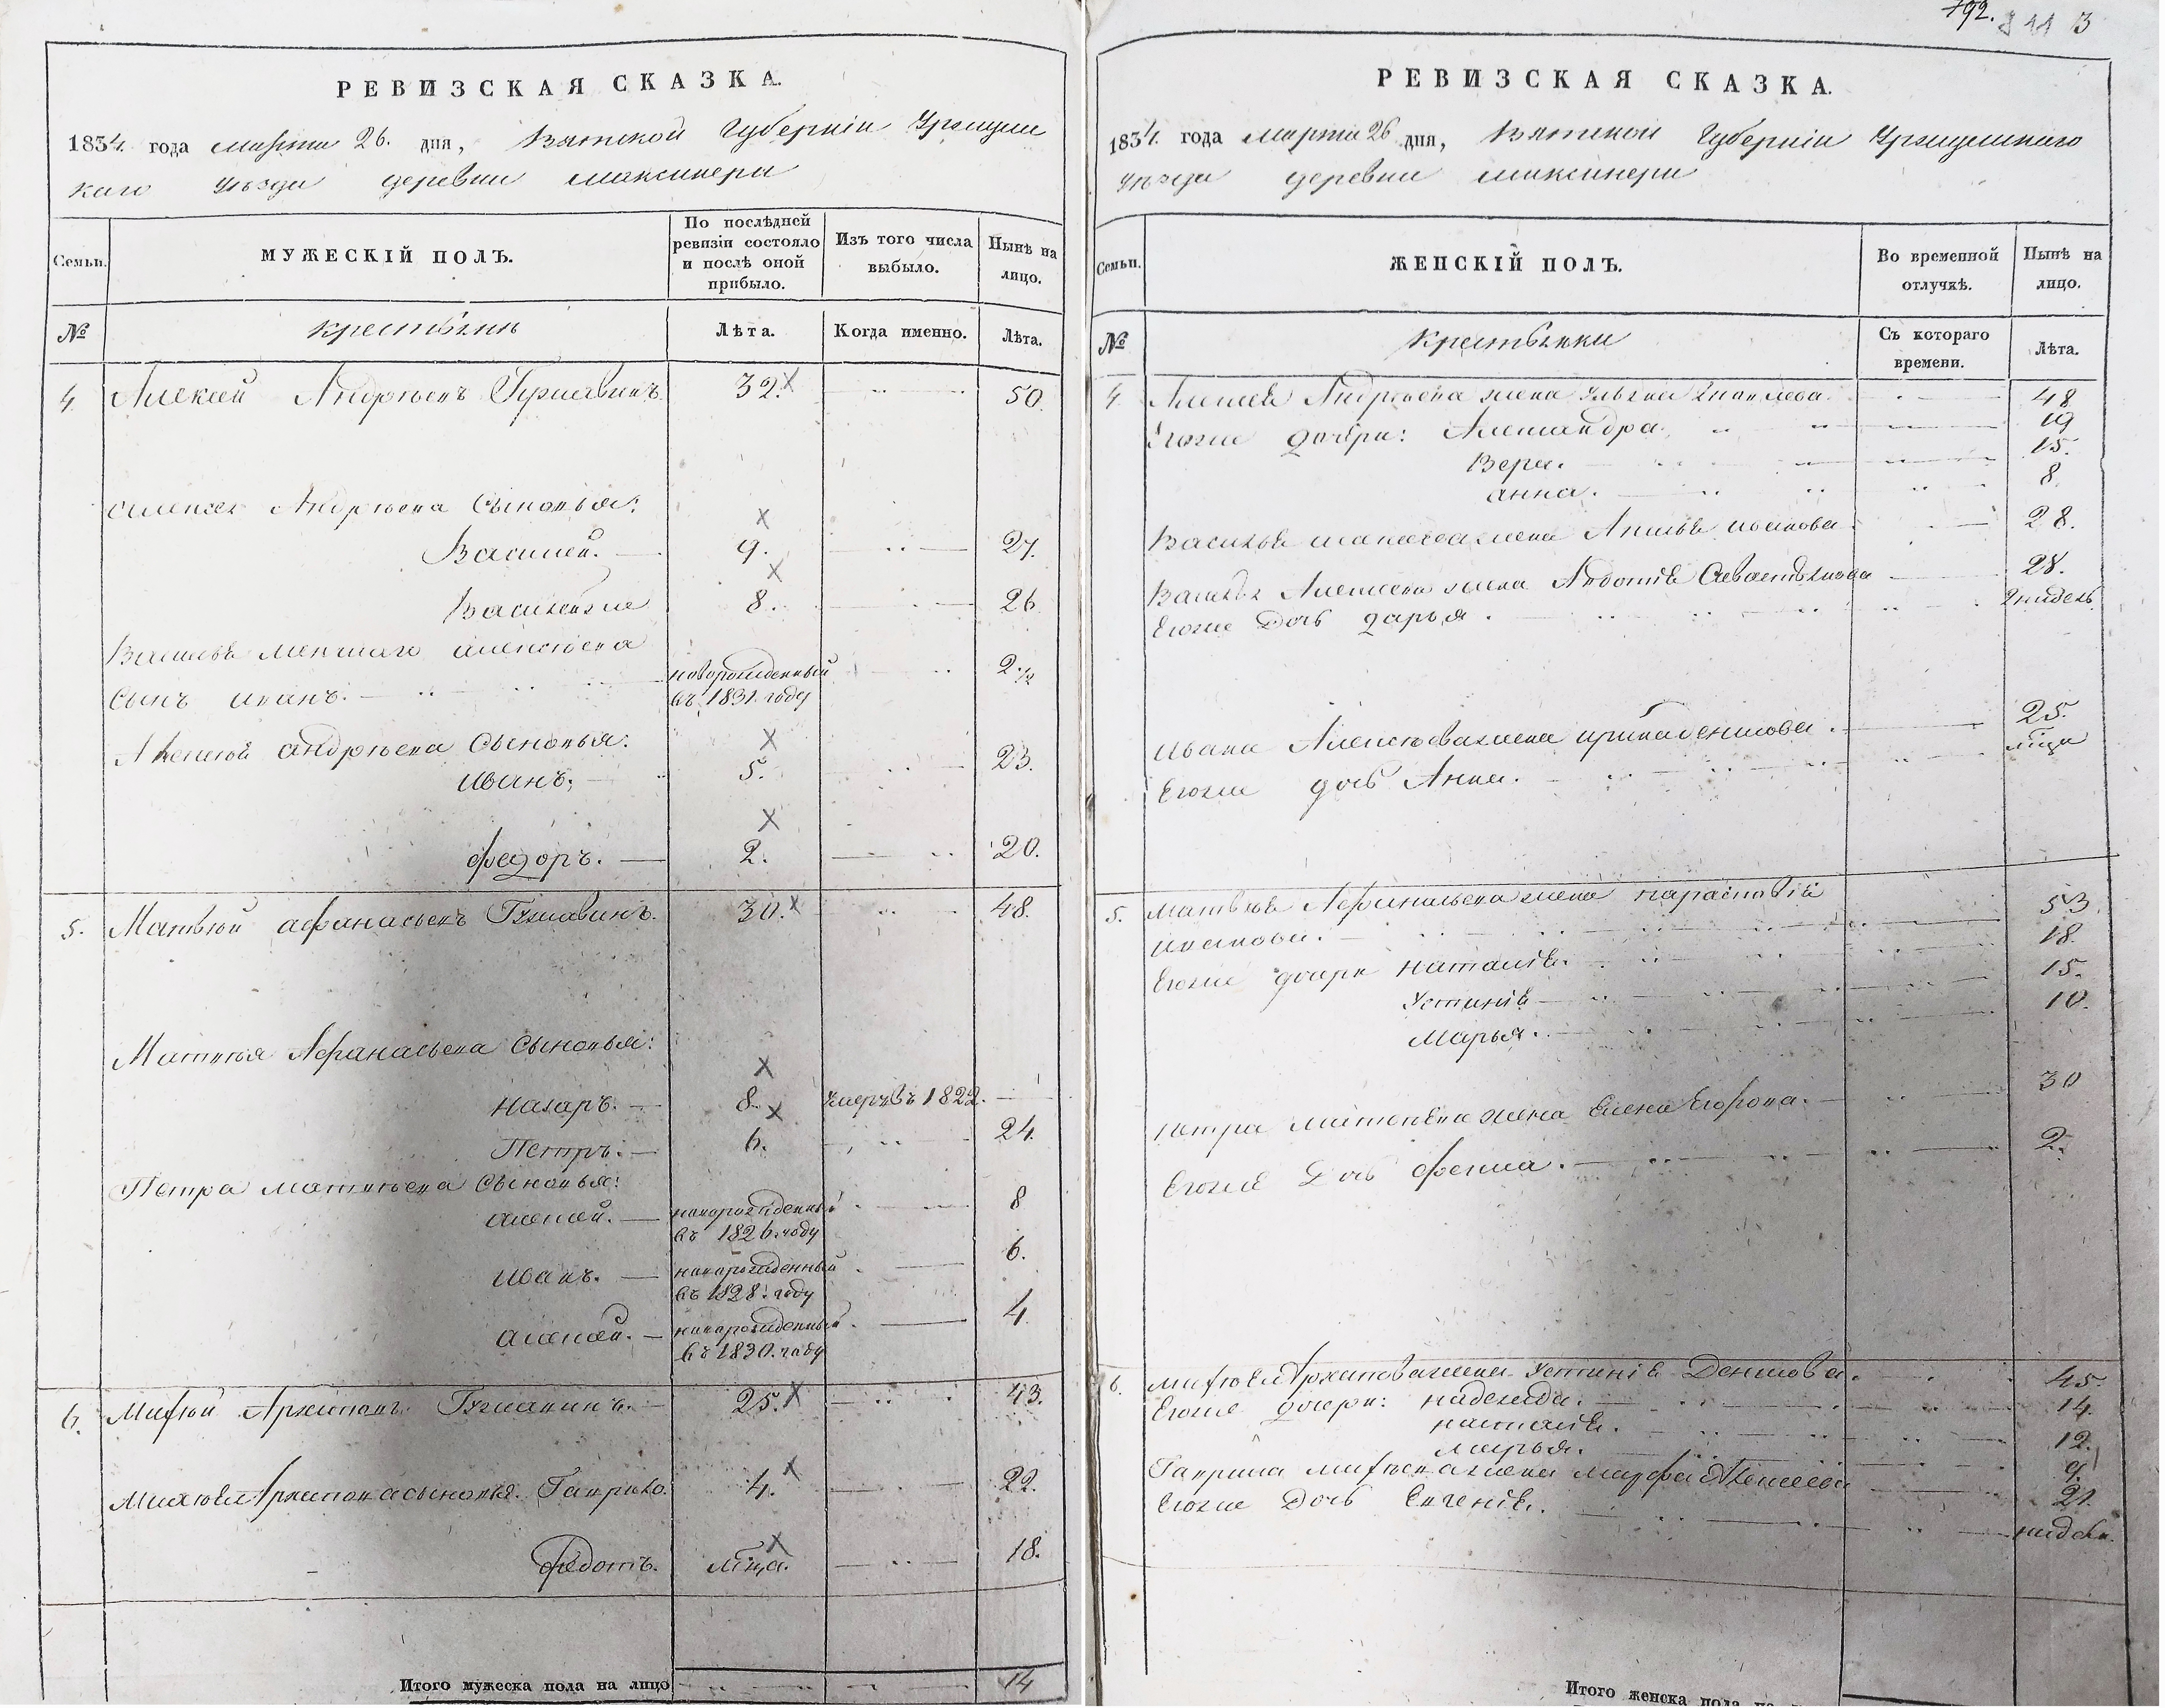 РЕВИЗСКАЯ СКАЗКА.
1834 года марта 26. дня, Вятской Губернiи Уржумс
каго уѣзда деревни
Семьи.
МУЖЕСКIЙ ПОЛЪ.
По послѣдней ревизiи состояло и послѣ оной прибыло.
Изъ того числа выбыло.
Нынѣ на лицо.
№
крестьяне
Лѣта.
Когда именно.
Лѣта.
4 Алексей Андреевъ 32. 50.
Алексея Андреева Сыновья:
Василей. 9. 27.
Василей же 8. 26
Василья меншаго Алексеева
Сынъ Иванъ. новорожденный въ 1831. году 2 1/2
Алексея Андреева Сыновья:
Иванъ. 5. 23.
Федоръ. 2. 20.
5. Матвей Афанасьевъ 30. 48.
Матвея Афанасьева Сыновья:
Назаръ. 8. умеръ въ 1822.
Петръ. 6. 24.
Петра Матвеева Сыновья:
Алексей. новорожденный въ 1826. году 8
Иванъ. новорожденный въ 1828. году 6.
Алексей. новорожденный въ 1830. году 4
6. Архиповъ 25. 43.
Архипова сыновья. Гаврило. 4. 22.
Федотъ. м҃ца. 18.
Итого мужеска пола на лицо 14
792. 3
РЕВИЗСКАЯ СКАЗКА.
1834. года марта 26 дня, Вятской Губернiи Уржумскаго
уѣзда деревни
Семьи.
ЖЕНСКIЙ ПОЛЪ.
Во временной отлучкѣ.
Нынѣ на лицо.
№
крестьянки
Съ котораго времени.
Лѣта.
4 Алексея Андреева жена Ульяна 48
Егоже дочери: Александра. 19
Вера. 15.
Анна. 8.
Василья жена 28.
Василья Алексеева жена Авдотья Севастьянова 28.
Егоже Дочь Дарья. 2 недель
Ивана Алексеева жена 25.
Егоже дочь Анна. м҃ца
5. Матвея Афанасьева жена Парасковья 53.
Иванова.
Егоже дочери Наталья. 18.
Устинья 15.
Марья. 10.
Петра Матвеева жена Елена Егорова. 30
Егоже Дочь Фекла. 2.
6. Архипова жена Устинья Денисова. 45.
Егоже дочери: Надежда. 14.
Наталья. 12.
Марья. 9.
Гаврила жена Марфа Алексеева 21.
Егоже Дочь Евгенья. недели.
Итого женска пола